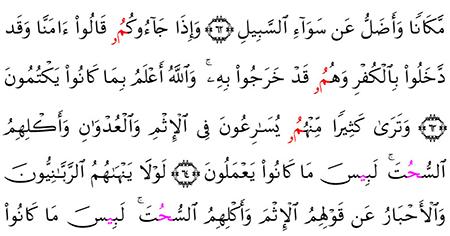 مَّكَانًا وَأَضَلُّ عَن سَوَآءِ ٱلسَّبِيلِ ۝٦٢ وَإِذَا جَآءُوكُمُۥ قَالُوٓا۟ ءَامَنَّا وَقَد
دَّخَلُوا۟ بِٱلْكُفْرِ وَهُمُۥ قَدْ خَرَجُوا۟ بِهِۦ ۚ وَٱللَّهُ أَعْلَمُ بِمَا كَانُوا۟ يَكْتُمُونَ
۝٦٣ وَتَرَىٰ كَثِيرًا مِّنْهُمُۥ يُسَـٰرِعُونَ فِى ٱلْإِثْمِ وَٱلْعُدْوَٰنِ وَأَكْلِهِمُ
ٱلسُّحُتَ ۚ لَبِيسَ مَا كَانُوا۟ يَعْمَلُونَ ۝٦٤ لَوْلَا يَنْهَىٰهُمُ ٱلرَّبَّـٰنِيُّونَ
وَٱلْأَحْبَارُ عَن قَوْلِهِمُ ٱلْإِثْمَ وَأَكْلِهِمُ ٱلسُّحُتَ ۚ لَبِيسَ مَا كَانُوا۟